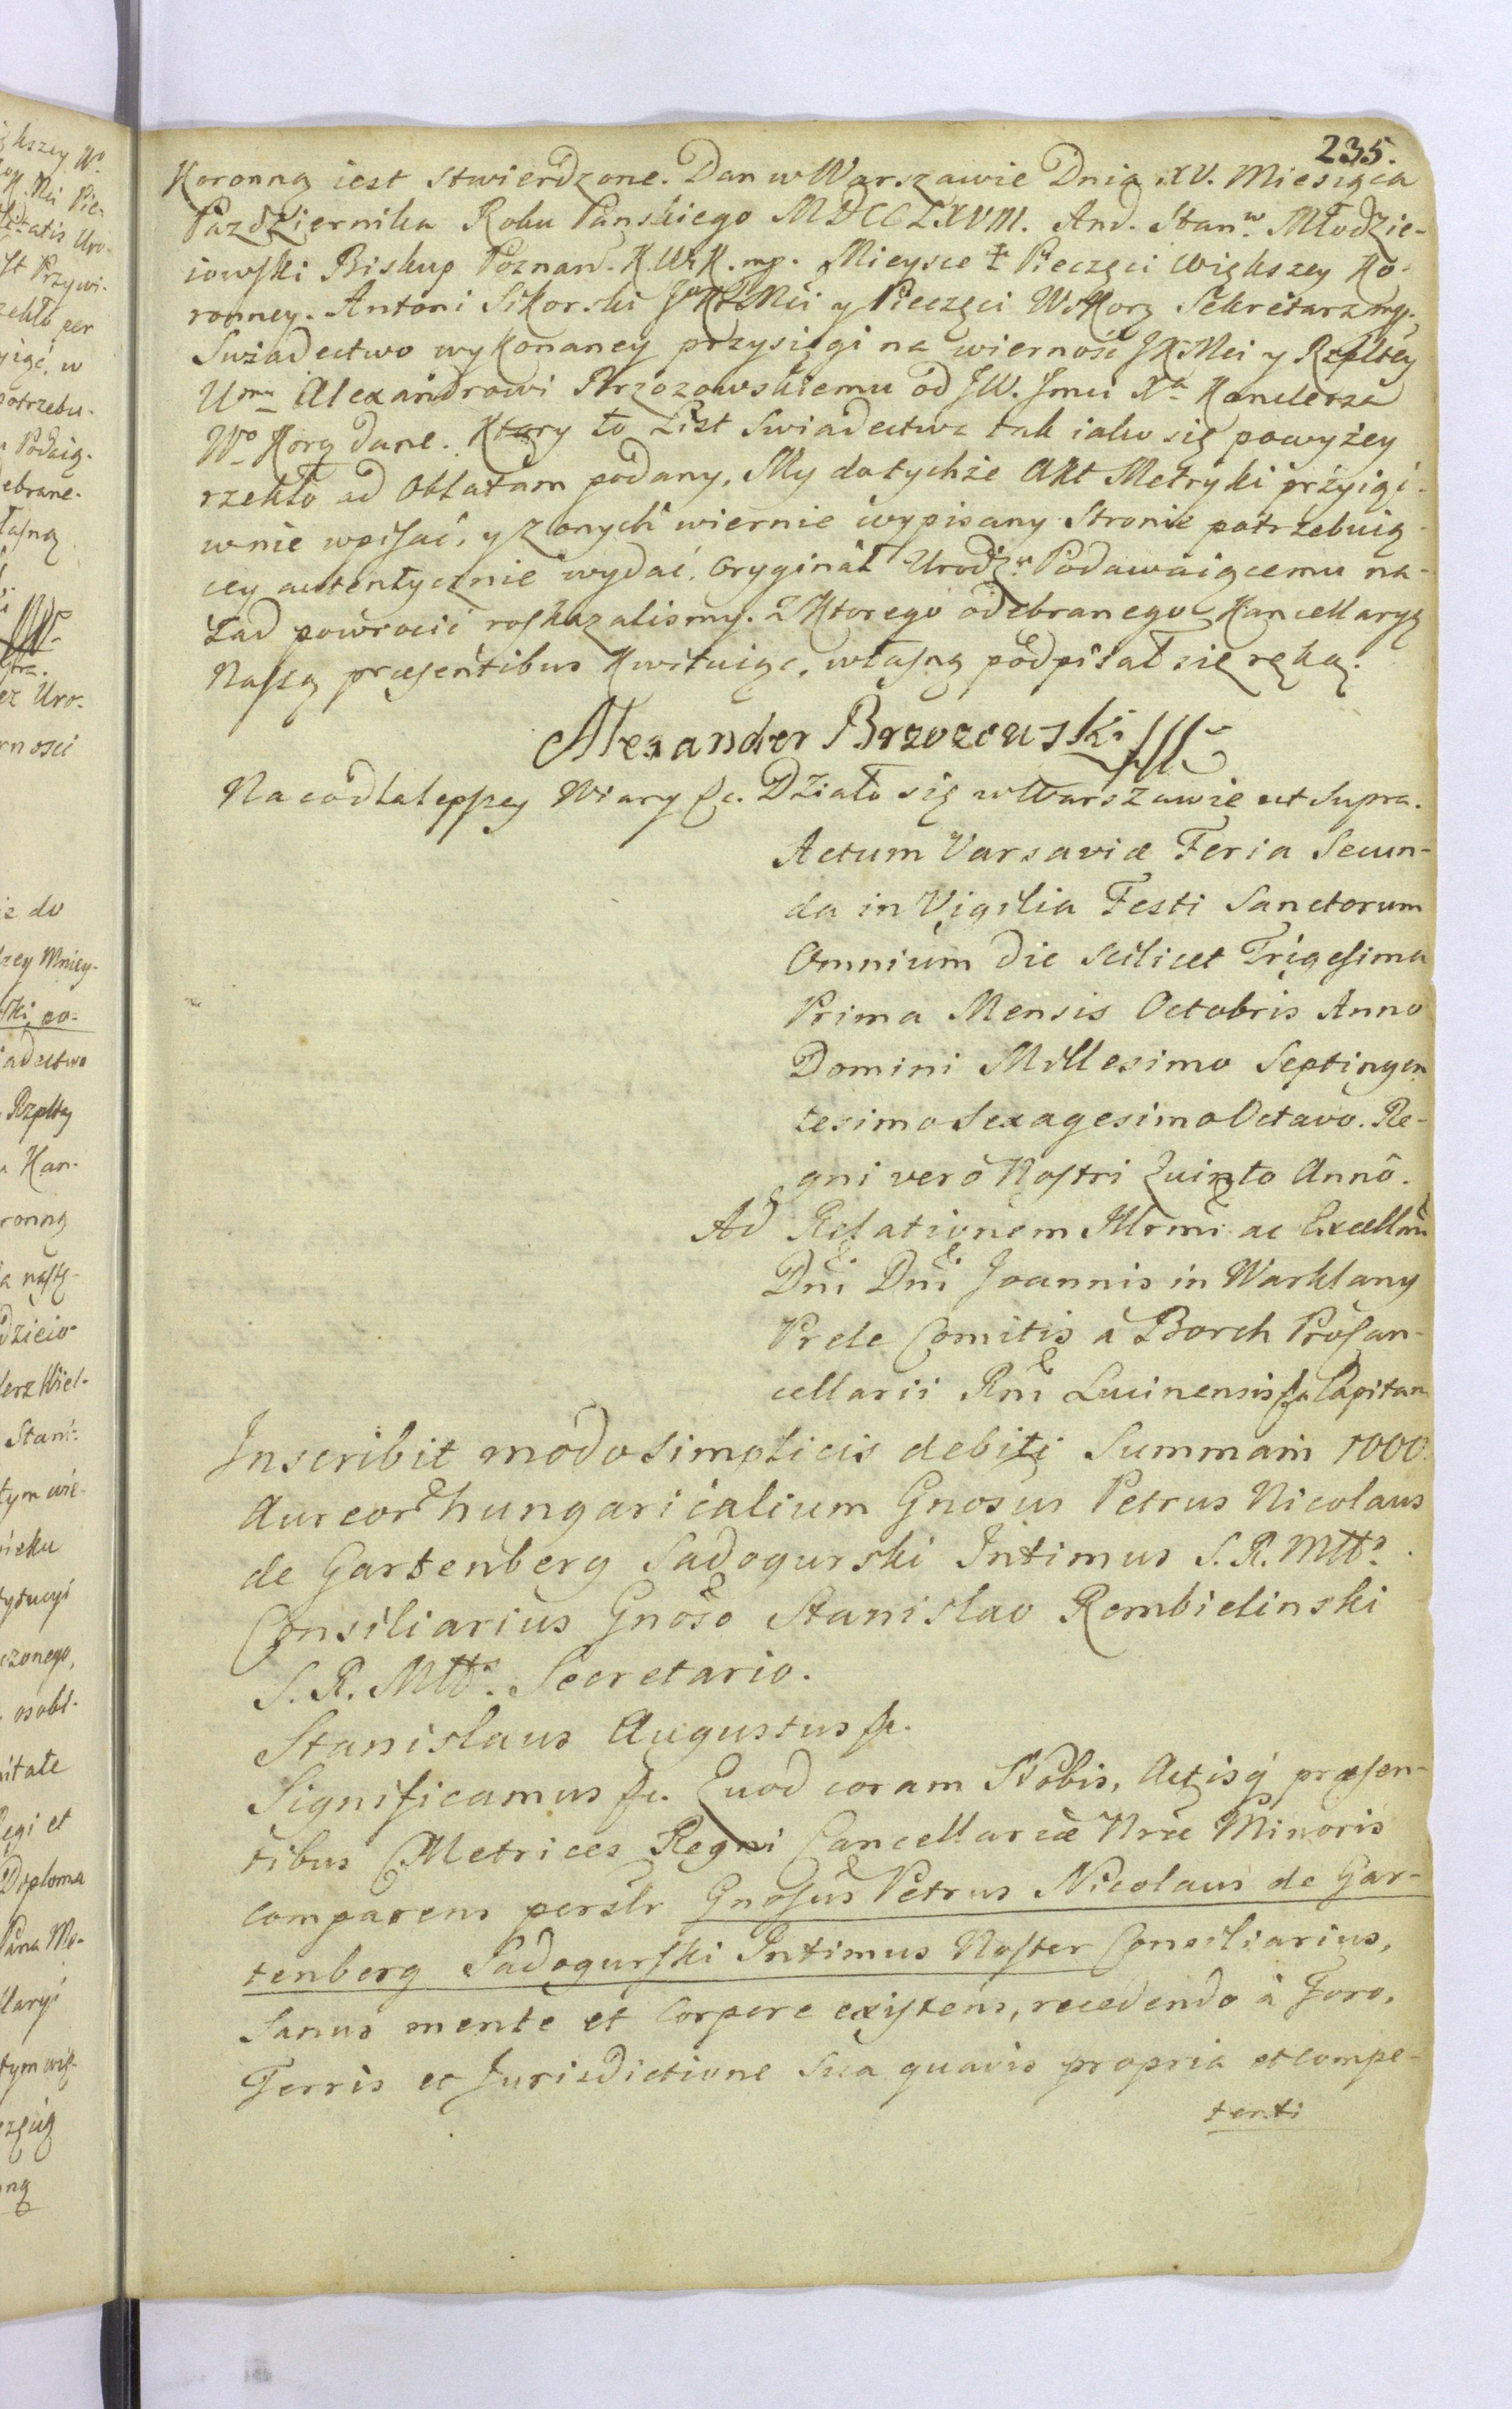 235.
Koronną iest stwierdzone. Dan w Warszawie Dnia XV. Miesiąca
Pazdziernika Roku Panskiego MDCCLXVIII. And. Stanw. Młodzie-
iowski Biskup Poznan. K.W.K. mp. Mieysce ‡ Pieczęci Większey Ko-
ronney. Antoni Sikorski JKMci y Pieczęci W. Kory Sekretarz mp.
Swiadectwo wykonaney przysięgi na wierność JKMci y Rzpltey
Urmu Alexandrowi Brzozowskiemu od JW. Jmci Xa Kanclerza
Wo Korg dane. Ktory to List Swiadectwa tak iako się powyżey
rzekło ad Oblatam podany, My dotychże Akt Metryki przyiąć
wnie wpisać, y z onych wiernie wypisany Stronie potrzebuią-
cey autentycznie wydać, Oryginał Urodz. Podawaiącemu na-
zad powrocić roskazalismy. Z Ktorego odebranego Kancellaryą
Naszą præsentibus Kwituiąc, własną podpisał się ręką.
Alexander Brzozowski
Na co dla lepszey Wiary &c. Działo się w Warszawie ut Supra.
Actum Varsaviæ Feria Secun-
da in Vigilia Festi Sanctorum
Omnium die scilicet Trigesima
Prima Mensis Octobris Anno
Domini Millesimo Septingen
tesimo Sexagesimo Octavo. Re-
gni verò Nostri Quinto Annô.
Ad Relationem Illrmi ac Excellmi
Dni Dni Joannis in Warklany
Prele Comitis à Borch Procan-
cellarii Rni Lucinensis &c Capitan
Inscribit modo simplicis debiti Summam 1000
Aureor hungaricalium Gnosus Petrus Nicolaus
de Gartenberg Sadogurski Intimus S. R. Mttis
Consiliarius Gnoso Stanislao Rembielinski
S. R. Mttis Secretario.
Stanislaus Augustus &c.
Significamus &c. Quod coram Nobis, Actisq præsen-
tibus Metrices Regni Cancellariæ Nræ Minoris
comparens persltr Gnosus Petrus Nicolaus de Gar-
tenberg Sadogurski Intimus Noster Consiliarius,
Sanus mente et Corpore existens, recedendo à Foro,
Terris et Jurisdictione Sua quavis propria et compe-
tenti